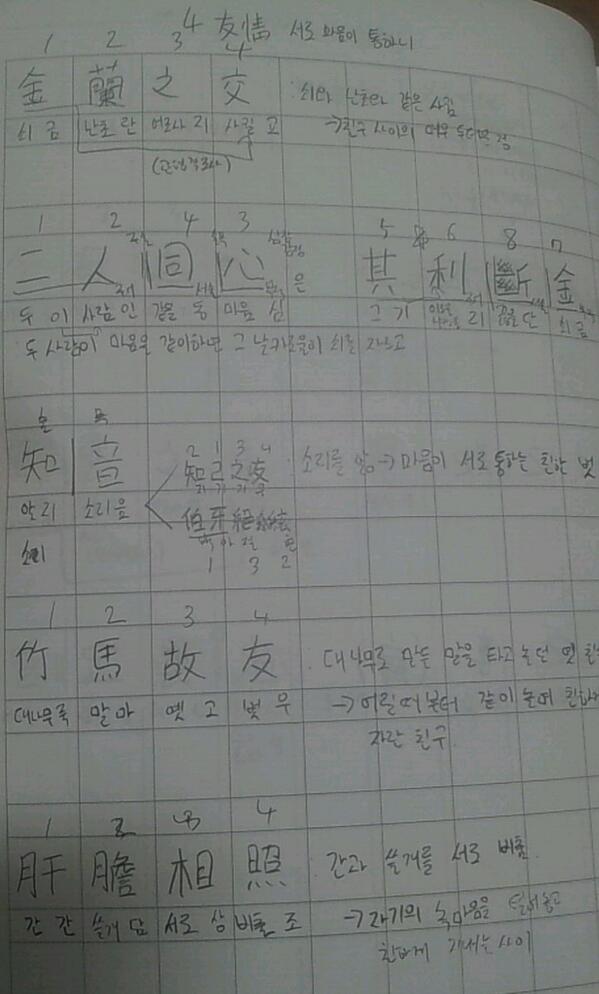 4 友情 서로 마음이 통하니
1 2 3 4
金 蘭 之 交 : 쇠와 난초와 같은 사귐
쇠 금 난초 란 어조사 지 사귈 교 →친구 사이의 매우 두터운 정
(관형격조사)
1 2 4 3 5 6 8 7
二 人 同 心 은 其 利 斷 金
두 이 사람 인 같을 동 마음 심 그 기 리 끊을 단 쇠 금
두 사람이 마음을 같이하면 그 날카로움이 쇠를 자르고
知 音
2 1 3 4
知己之友 : 소리를 앎→마음이 서로 통하는 친한 벗
알 지 소리 음
伯牙絶絃
백 아 절 현
1 3 2
1 2 3 4
竹 馬 故 友 : 대나무로 만든 말을 타고 놀던 옛
대나무 죽 말 마 옛 고 벗 우 →어릴때부터 같이 놀며
자란 친구
1 2 3 4
肝 膽 相 照 : 간과 쓸개를 서로 비춤
간 간 쓸개 담 서로 상 비출 조 →자기의 속마음을 털어놓고
친하게 지내는 사이